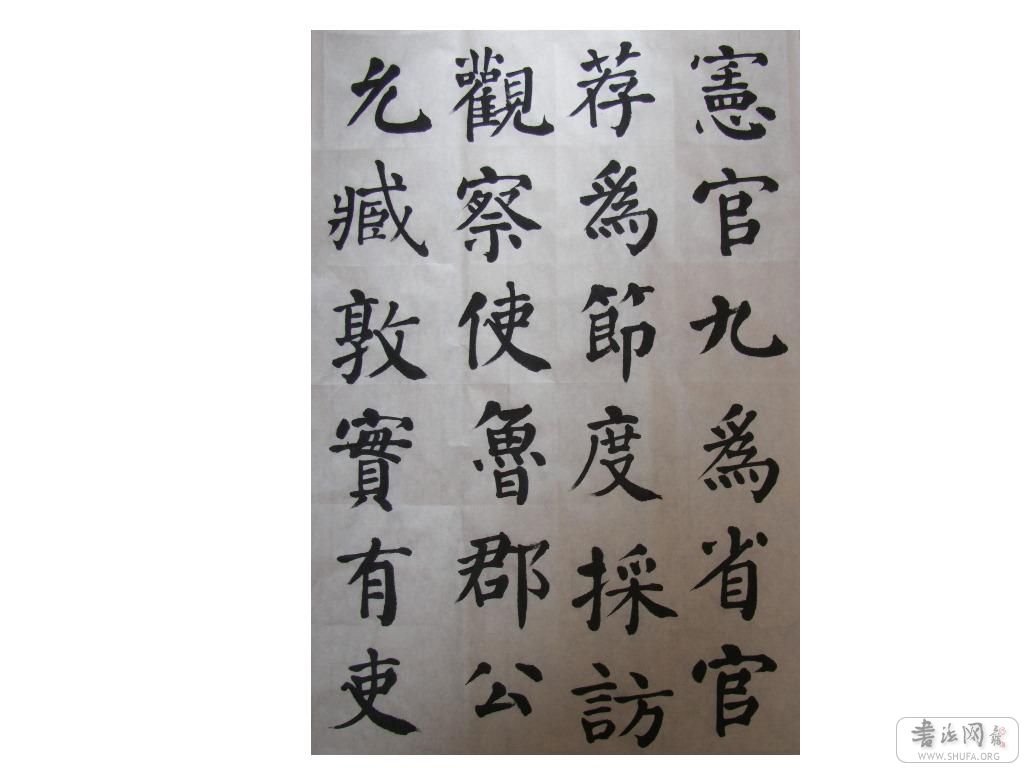 憲官九爲省官
荐爲節度採訪
觀察使魯郡公
允臧敦實有吏
書法网
WWW.SHUFA.ORG